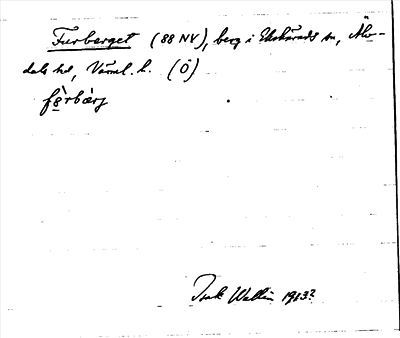 Furberget (88 NV), berg i Ekshärads sn, Älv-
dals hd, Värml. l. (Ö)
fö̀rbærj
Isak Wallin 1913?